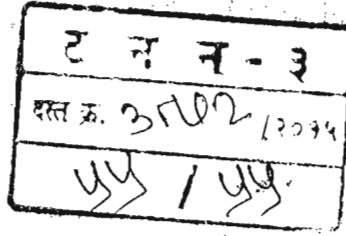 ट न न - ३
दस्त क्र. ३५७२ /२०१५
५५ / ५५